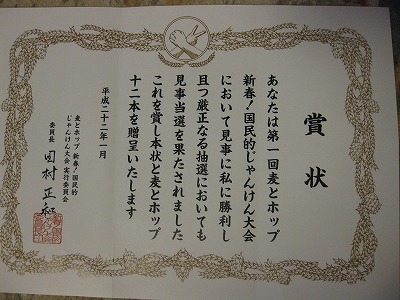 賞状
あなたは第一回麦とホップ
新春！国民的じゃんけん大会
において見事に私に勝利し
且つ厳正なる抽選においても
見事当選を果たされました
これを賞し本状と麦とホップ
十二本を贈呈いたします
平成二十二年一月
麦とホップ 新春！国民的
じゃんけん大会 実行委員会
委員長 田村正和